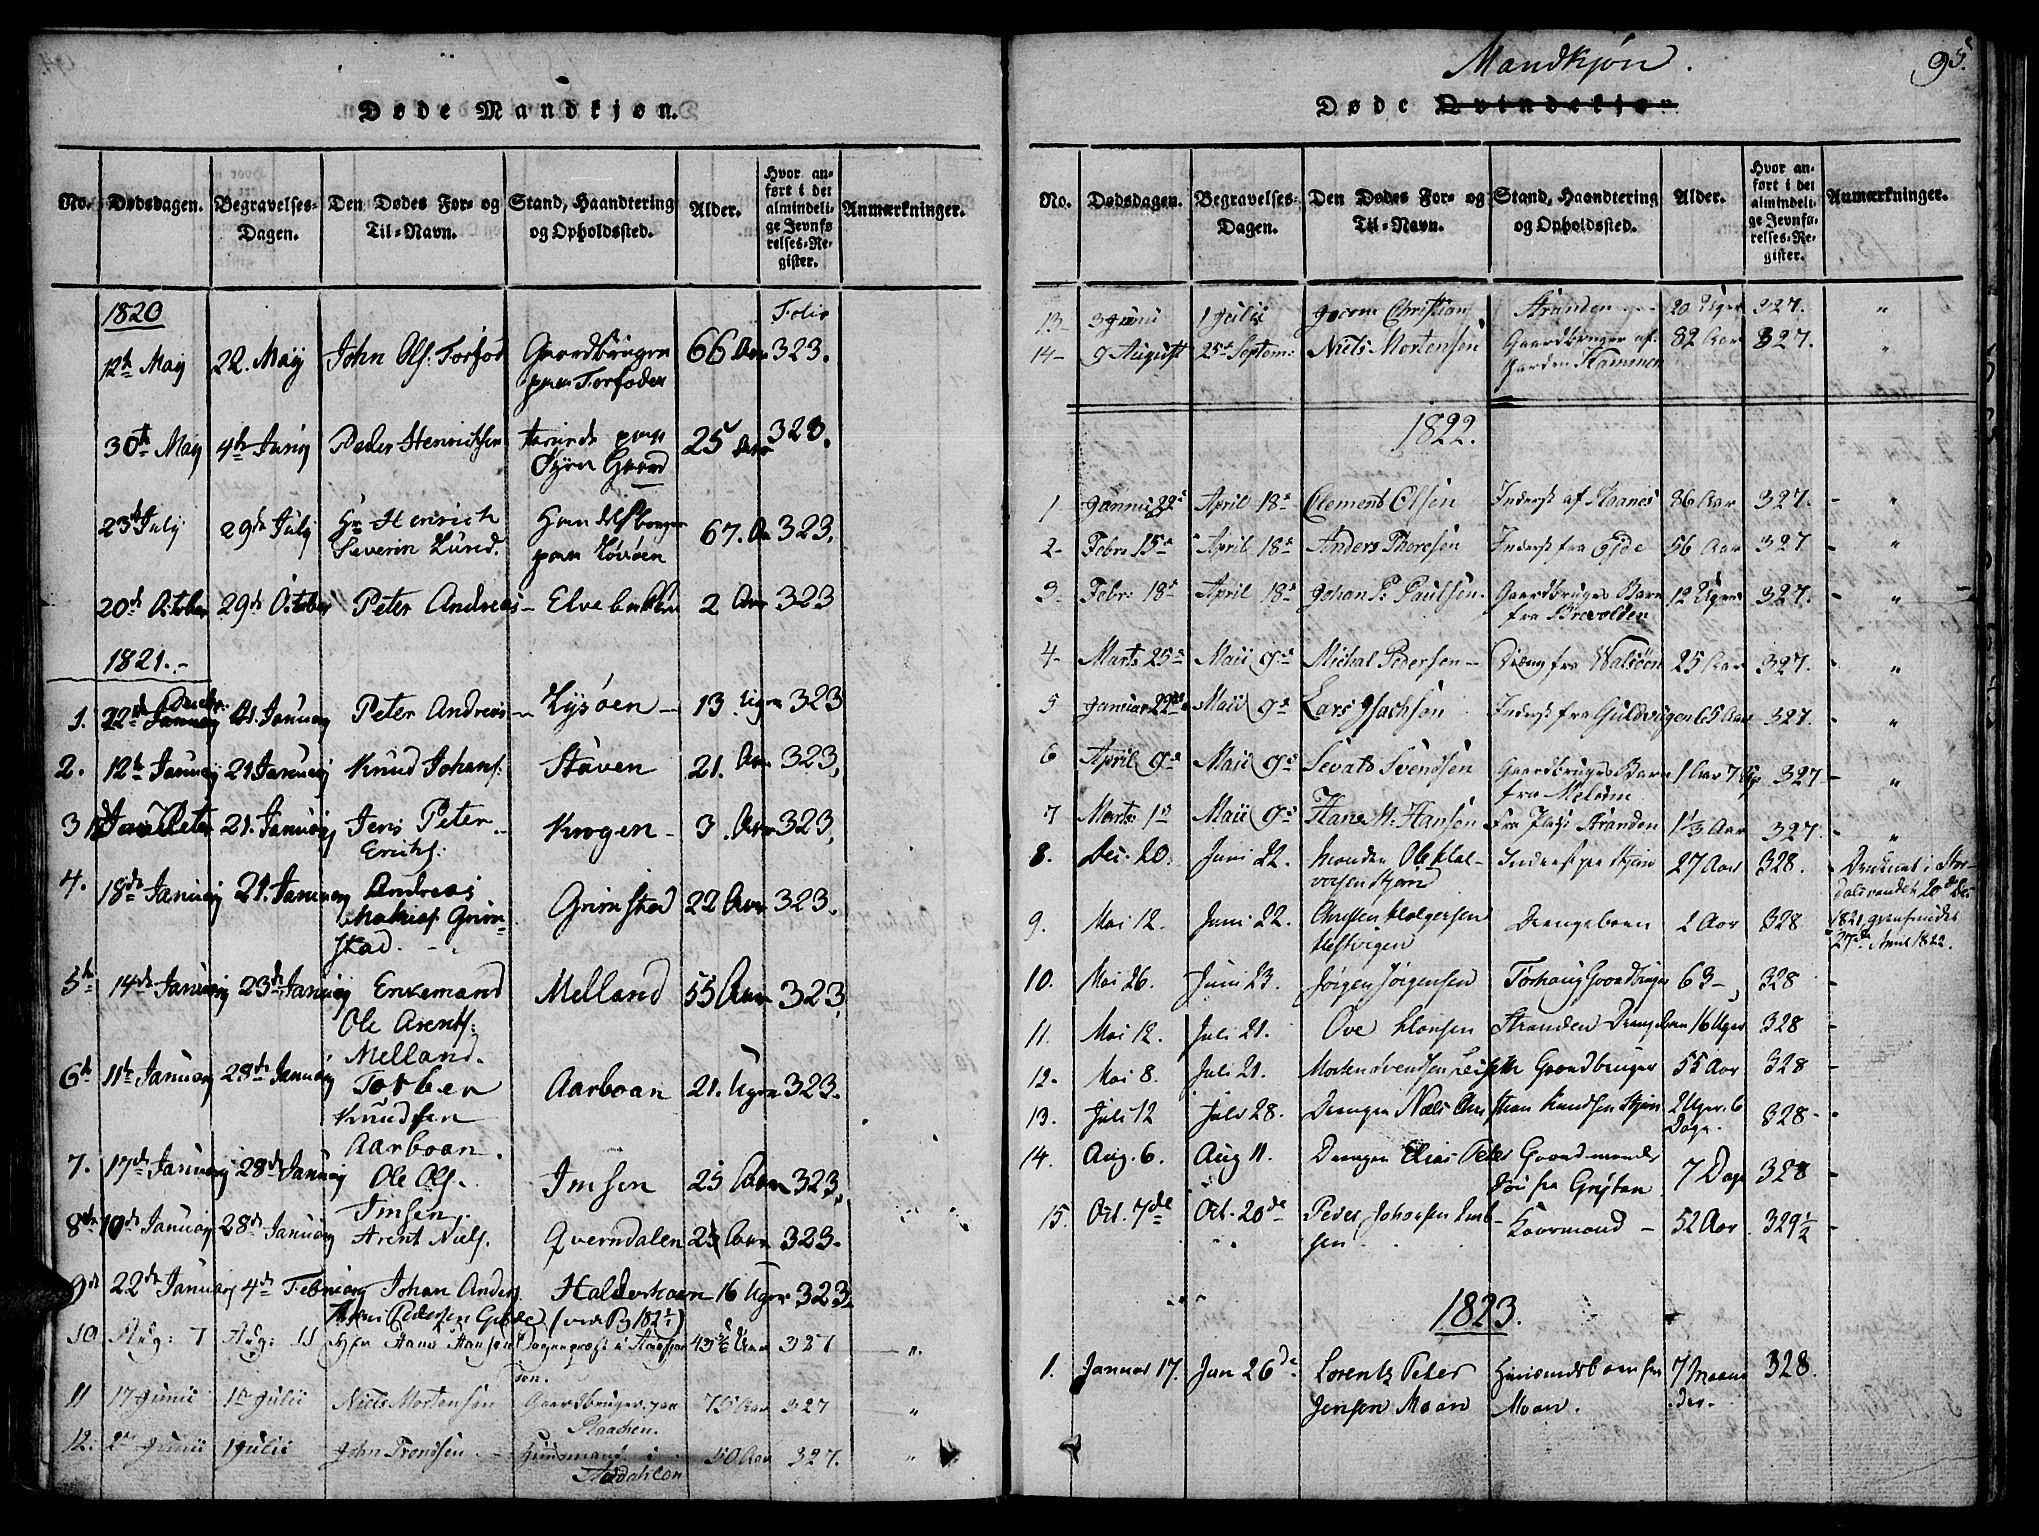 Døde Mandkjøn.
No. Dødsdagen. Begravelses-Dagen. Den Dødes For- og Til-Navn. Stand, Haandtering og Opholdssted. Alder. Hvor anført i det almindelige Jevnførelses-Register. Anmærkninger.
1820 Folio
12te May 22. May John Ols. Torsød Gaardbruger paa Torsødes 66 Aar 323.
30th May 4th Juny Peder Henrichsen paa Skjøn Gaard 25 Aar 323.
23de July 29de July Hr Henrich Severin Lund. Handelsborger paa Løvøen 67. Aar 323.
20de October 29de October Peter Andreas Elvebakken 2 Aar 323
1821.-
1. 22de Decbr. 21 January Peter Andreas Lysøen 13 Ugr 323
2. 12te January 21 January Knud Johans: Støven 21. Aar 323,
3 21. January Jens Peter Erichs: Krogen 3. Aar 323,
4. 18de January 21. January Andreas Mathias Grimstad. Grimstad 22 Aar 323.
5te 14de January 23de January Enkemand Ole Arents: Melland. Melland 55 Aar 323,
6te 11te January 28de January Torber Knudsen Aarboan. Aarboan 21. Ugr 323.
7. 17de January 28de January Ole Ols. Imsen. Imsen 25 Aar 323.
8de 10de January 28de January Arent Niels. Qverndalen 25 Aar 323.
9de 22de January 4de Februar Johan Anders. 16 Ugr 323.
10 Aug: 7 Aug: 11 Hans Hansen 327 ".
11 17 Junii 1 Julii Niels Mortensen Gaardbruger paa 75 Aar 327 "
12. Junii 1 Julii John Trondsen Huusmand i 50 Aar 327. "
Mandkjøn. 95.
Døde Qvindekjøn
No. Dødsdagen. Begravelses-Dagen. Den Dødes For- og Til-Navn. Stand, Haandtering og Opholdssted. Alder. Hvor anført i det almindelige Jevnførelses-Register. Anmærkninger.
13- 3 Junii 1 Julii Christian Stranden 20 Uger 327. "
14- 9 August 25de Septem: Niels Mortensen Gaardbruger af Garden Hammen 82 Aar 327. "
1822.
1- Januar 22de April 18de Clement Olsen Inderst af 86 Aar 327. "
2- Febr: 15de April 18de Anders Thoresen Inderst fra Gjde 56 Aar 327 "
3- Febr: 18de April 18de Johan P. Paulsen Gaardbruges Barn fra Brevolden 12 Uger 327. "
4- Marts 25de Maii 9de Michal Pedersen Dreng fra Walsøen 25 Aar 327. "
5 Januar 22de Maii 9de Lars Isachsen Inderst fra Guldvigen 65 Aar 327. "
6 April 9de Maii 9de Sevats Svendsen Gaardbruges Barn fra Melum 1 Aar 7 327 "
7 Marts 1de Maii 9de Hans M. Hansen Fra Plads Stranden 1 1/3 Aar 327. "
8. Dec. 20. Juni 22. Manden Ole Halvorsen Skjøn Inderst paa Skjøn 27 Aar 328. Druknet i Stordalsvandet 20de Dec 1821 gjenfundet 27de April 1822.
9. Mai 12. Juni 22. Christen Holgersen Hestvigen Drengebarn 2 Aar 328
10. Mai 26. Juni 23. Jørgen Jørgensen Torhaug Gaardbruger 63 328
11. Mai 12. Juli 21. Ove Hansen Stranden Drengebarn 16 Uger 328
12. Mai 8. Juli 21. Morten Svendsen Gaardbruger 55 Aar 328
13. Juli 12 Juli 28. Drengen Niels Christian Knudsen Skjøn 2 Uger 6 Dage. 328
14. Aug. 6. Aug 11. Drengen Elias Peter Gaardmands Søn fra Grytan 7 Dage 328
15. Oct. 7de Oct. 20de Peder Johansen 52 Aar 329½
1823.
1. Januar 17. Jan 26de Lorentz Peter Jensen Moan Huusmandsbarn fra Moan. 7 Maaneder. 328.